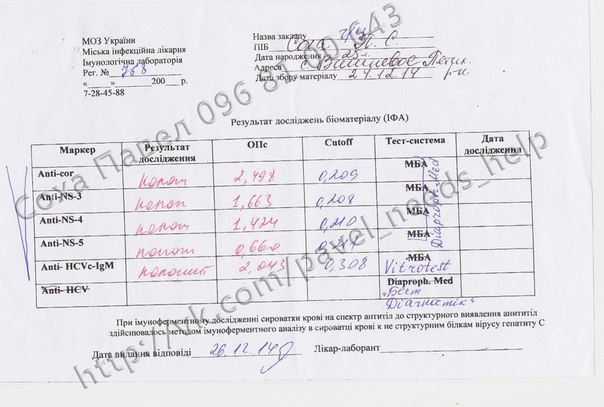 МОЗ України
Міська інфекційна лікарня
Імунологічна лабораторія
Рег. № 768
«____»__________200___ р.
7-28-45-88
Назва закладу
ПІБ Соха П. С
Дата народження 25 л.
Адреса с. Вишневое
Дата збору матеріалу 24.12.14 р-н.
Результат досліджень біоматеріалу (ІФА)
Маркер Результат дослідження ОПс Cutoff Тест-система Дата дослідження
Anti-cor полож 2,498 0,209 МБА
Anti-NS-3 полож 1,663 0,208 МБА
Anti-NS-4 полож 1,424 0,210 МБА
Anti-NS-5 полож 0,660 МБА
Anti- HCVc-IgM положит 2,043 0,308 МБА Vitrotest
Anti- HCV Diaproph. Med
Diaproph Med
Діагностик"
При імуноферментному дослідженні сироватки крові на спектр антитіл до структурного виявлення анититіл
здійснювалось методом імуноферментного аналізу в сироватці крові к не структурним білкам вірусу гепатиту С
Дата видання відповіді 26.12.14 Лікар-лаборант
Соха Павел 096 81 00 643
http://vk.com/pavel_needs_help